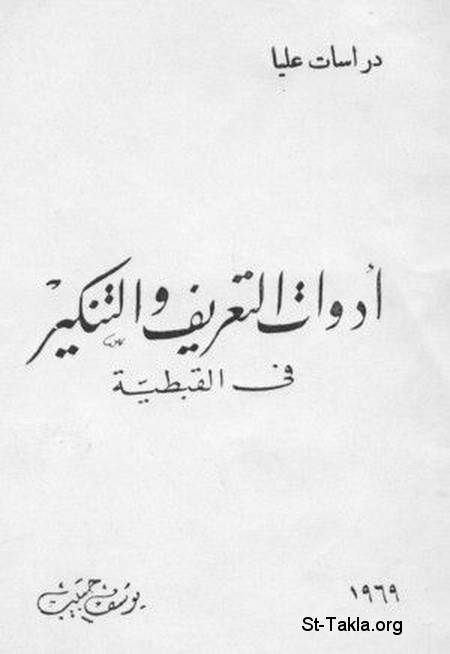 دراسات عليا
أدوات التعريف والتنكير
فى القبطية
١٩٦٩
يوسف حبيب
St-Takla.org